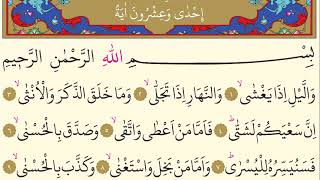 اِحْدٰى وَعِشْرُونَ اٰيَةً
بِسْمِ اللّٰهِ الرَّحْمٰنِ الرَّحِيمِ
وَالَّيْلِ اِذَا يَغْشٰىۙ ١ وَالنَّهَارِ اِذَا تَجَلّٰىۙ ٢ وَمَا خَلَقَ الذَّكَرَ وَالْاُنْثٰىۙ ٣
اِنَّ سَعْيَكُمْ لَشَتّٰىۜ ٤ فَاَمَّا مَنْ اَعْطٰى وَاتَّقٰىۙ ٥ وَصَدَّقَ بِالْحُسْنٰىۙ ٦
فَسَنُيَسِّرُهُ لِلْيُسْرٰىۜ ٧ وَاَمَّا مَنْ بَخِلَ وَاسْتَغْنٰىۙ ٨ وَكَذَّبَ بِالْحُسْنٰىۙ ٩